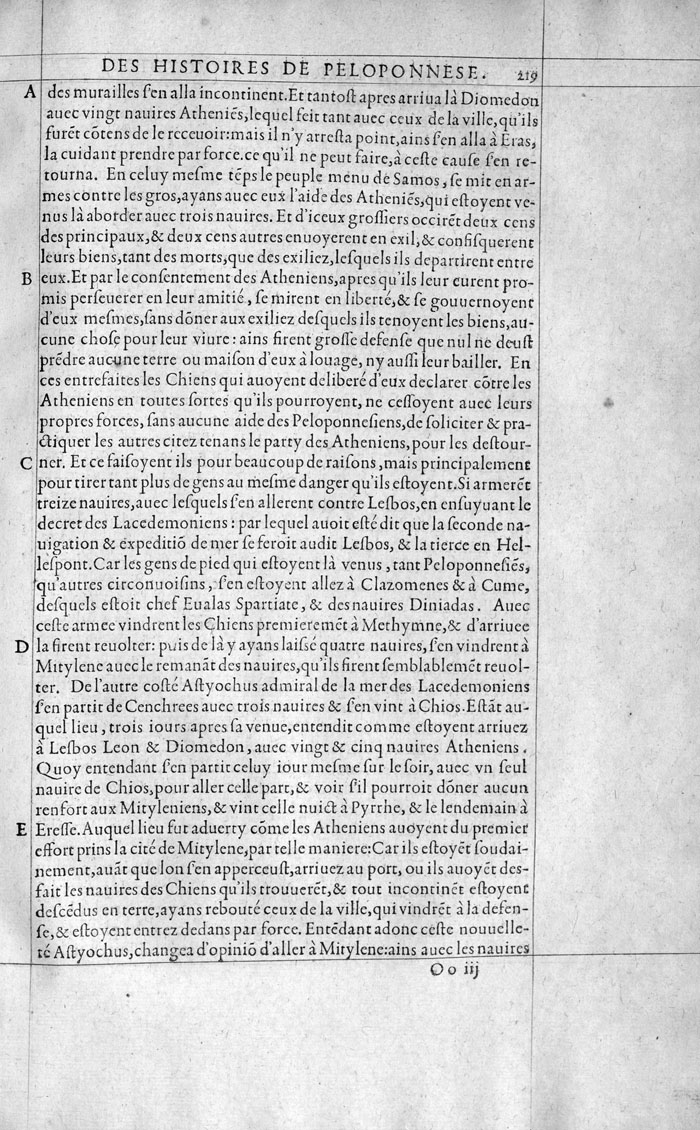 DES HISTOIRES DE PELOPONNESE. 219
A des murailles s'en alla incontinent.Et tantost apres arriua là Diomedon
auec vingt nauires Atheniẽs,lequel feit tant auec ceux de la ville,qu'ils
furẽt cõtens de le receuoir:mais il n'y arresta point,ains s'en alla à Eras,
la cuidant prendre par force.ce qu'il ne peut faire,à ceste cause s'en re-
tourna. En celuy mesme tẽps le peuple menu de Samos, se mit en ar-
mes contre les gros,ayans auec eux l'aide des Atheniẽs,qui estoyent ve-
nus là aborder auec trois nauires. Et d'iceux grossiers occirẽt deux cens
des principaux,& deux cens autres enuoyerent en exil,& confisquerent
leurs biens,tant des morts,que des exiliez,lesquels ils departirent entre
B eux.Et par le consentement des Atheniens,apres qu'ils leur eurent pro-
mis perseuerer en leur amitié, se mirent en liberté,& se gouuernoyent
d'eux mesmes,sans dõner aux exiliez desquels ils tenoyent les biens,au-
cune chose pour leur viure : ains firent grosse defense que nul ne deust
prẽdre aucune terre ou maison d'eux à louage, ny aussi leur bailler. En
ces entrefaites les Chiens qui auoyent deliberé d'eux declarer cõtre les
Atheniens en toutes sortes qu'ils pourroyent, ne cessoyent auec leurs
propres forces, sans aucune aide des Peloponnesiens,de soliciter & pra-
ctiquer les autres citez tenans le party des Atheniens,pour les destour-
C ner. Et ce faisoyent ils pour beaucoup de raisons,mais principalement
pour tirer tant plus de gens au mesme danger qu'ils estoyent.Si armerẽt
treize nauires,auec lesquels s'en allerent contre Lesbos,en ensuyuant le
decret des Lacedemoniens : par lequel auoit esté dit que la seconde na-
uigation & expeditiõ de mer se feroit audit Lesbos, & la tierce en Hel-
lespont.Car les gens de pied qui estoyent là venus, tant Peloponnesiẽs,
qu'autres circonuoisins, s'en estoyent allez à Clazomenes & à Cume,
desquels estoit chef Eualas Spartiate, & des nauires Diniadas. Auec
ceste armee vindrent les Chiens premieremẽt à Methymne,& d'arriuee
D la firent reuolter: puis de là y ayans laissé quatre nauires, s'en vindrent à
Mitylene auec le remanãt des nauires,qu'ils firent semblablemẽt reuol-
ter. De l'autre costé Astyochus admiral de la mer des Lacedemoniens
s'en partit de Cenchrees auec trois nauires & s'en vint à Chios.Estãt au-
quel lieu, trois iours apres sa venue,entendit comme estoyent arriuez
à Lesbos Leon & Diomedon, auec vingt & cinq nauires Atheniens.
Quoy entendant s'en partit celuy iour mesme sur le soir, auec vn seul
nauire de Chios,pour aller celle part,& voir s'il pourroit dõner aucun
renfort aux Mityleniens,& vint celle nuict à Pyrrhe, & le lendemain à
E Eresse. Auquel lieu fut aduerty cõme les Atheniens auoyent du premier
effort prins la cité de Mitylene,par telle maniere:Car ils estoyẽt soudai-
nement,auãt que lon s'en apperceust,arriuez au port, ou ils auoyẽt des-
fait les nauires des Chiens qu'ils trouuerẽt,& tout incontinẽt estoyent
descẽdus en terre,ayans rebouté ceux de la ville,qui vindrẽt à la defen-
se,& estoyent entrez dedans par force. Entẽdant adonc ceste nouuelle-
té Astyochus,changea d'opiniõ d'aller à Mitylene:ains auec les nauires
Oo iij